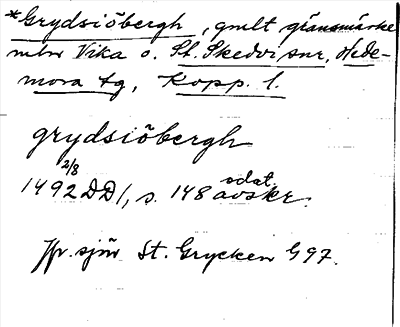 *Grydsiöbergh, gmlt gränsmärke
mlm Vika o. St. Skedvi snr, Hede-
mora tg, Kopp. l.
grydsiöbergh
2/8
1492 DD 1, s. 148 avskr.
sdat.
Jfr. sjön St. Grycken G 97.